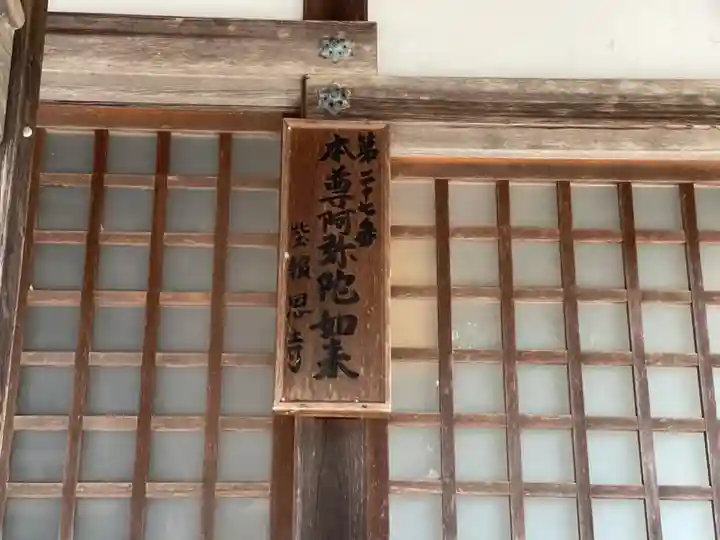 第二十七番
本尊阿弥陀如来
堂報恩寺